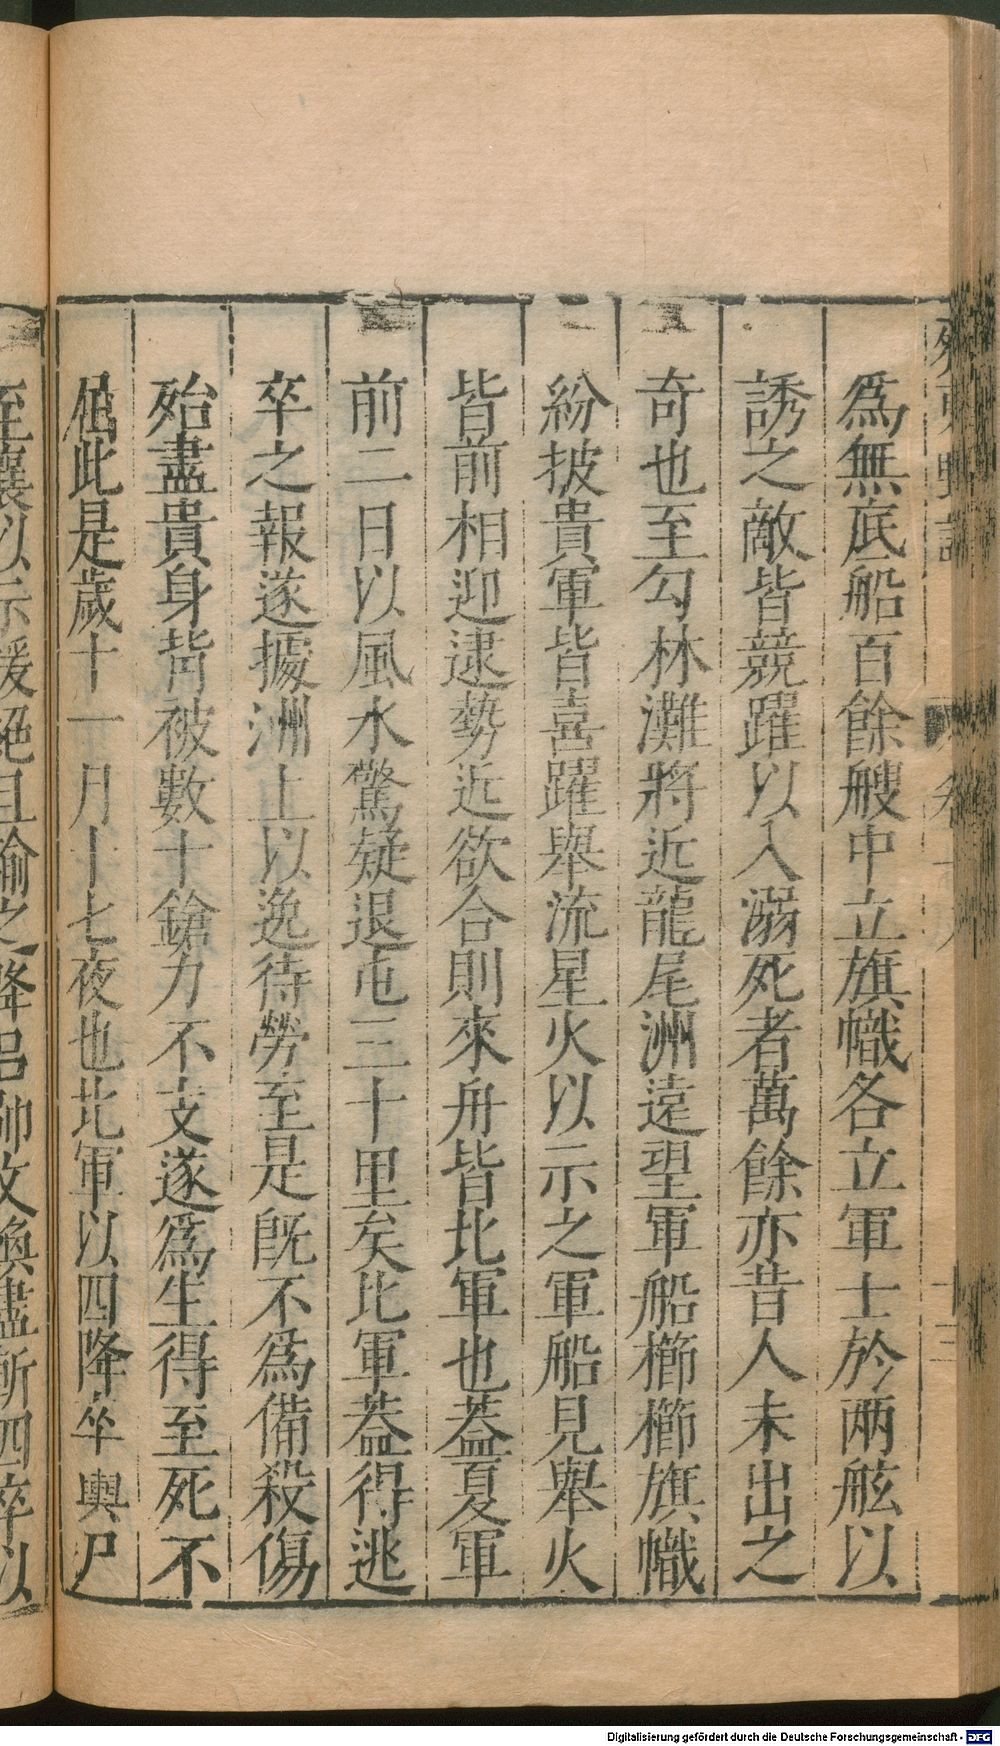 爲無底船百餘艘中立旗幟各立軍士於兩舷以
誘之敵皆競躍以入溺死者萬餘亦昔人未出之
奇也至勾林灘將近龍尾洲遠望軍船櫛櫛旗幟
紛披貴軍皆喜躍舉流星火以示之軍船見舉火
皆前相迎逮勢近欲合則來舟皆北軍也葢夏軍
前二日以風水驚疑退屯三十里矣北軍葢得逃
卒之報遂據洲上以逸待勞至是旣不爲備殺傷
殆盡貴身背被數十鎗力不支遂爲生得至死不
屈此是歲十一月十七夜也北軍以四降卒輿尸
至襄以示援絕且諭之降呂帥文煥盡斬四卒以
十三
Digitalisierung gefördert durch die Deutsche Forschungsgemeinschaft - DFG